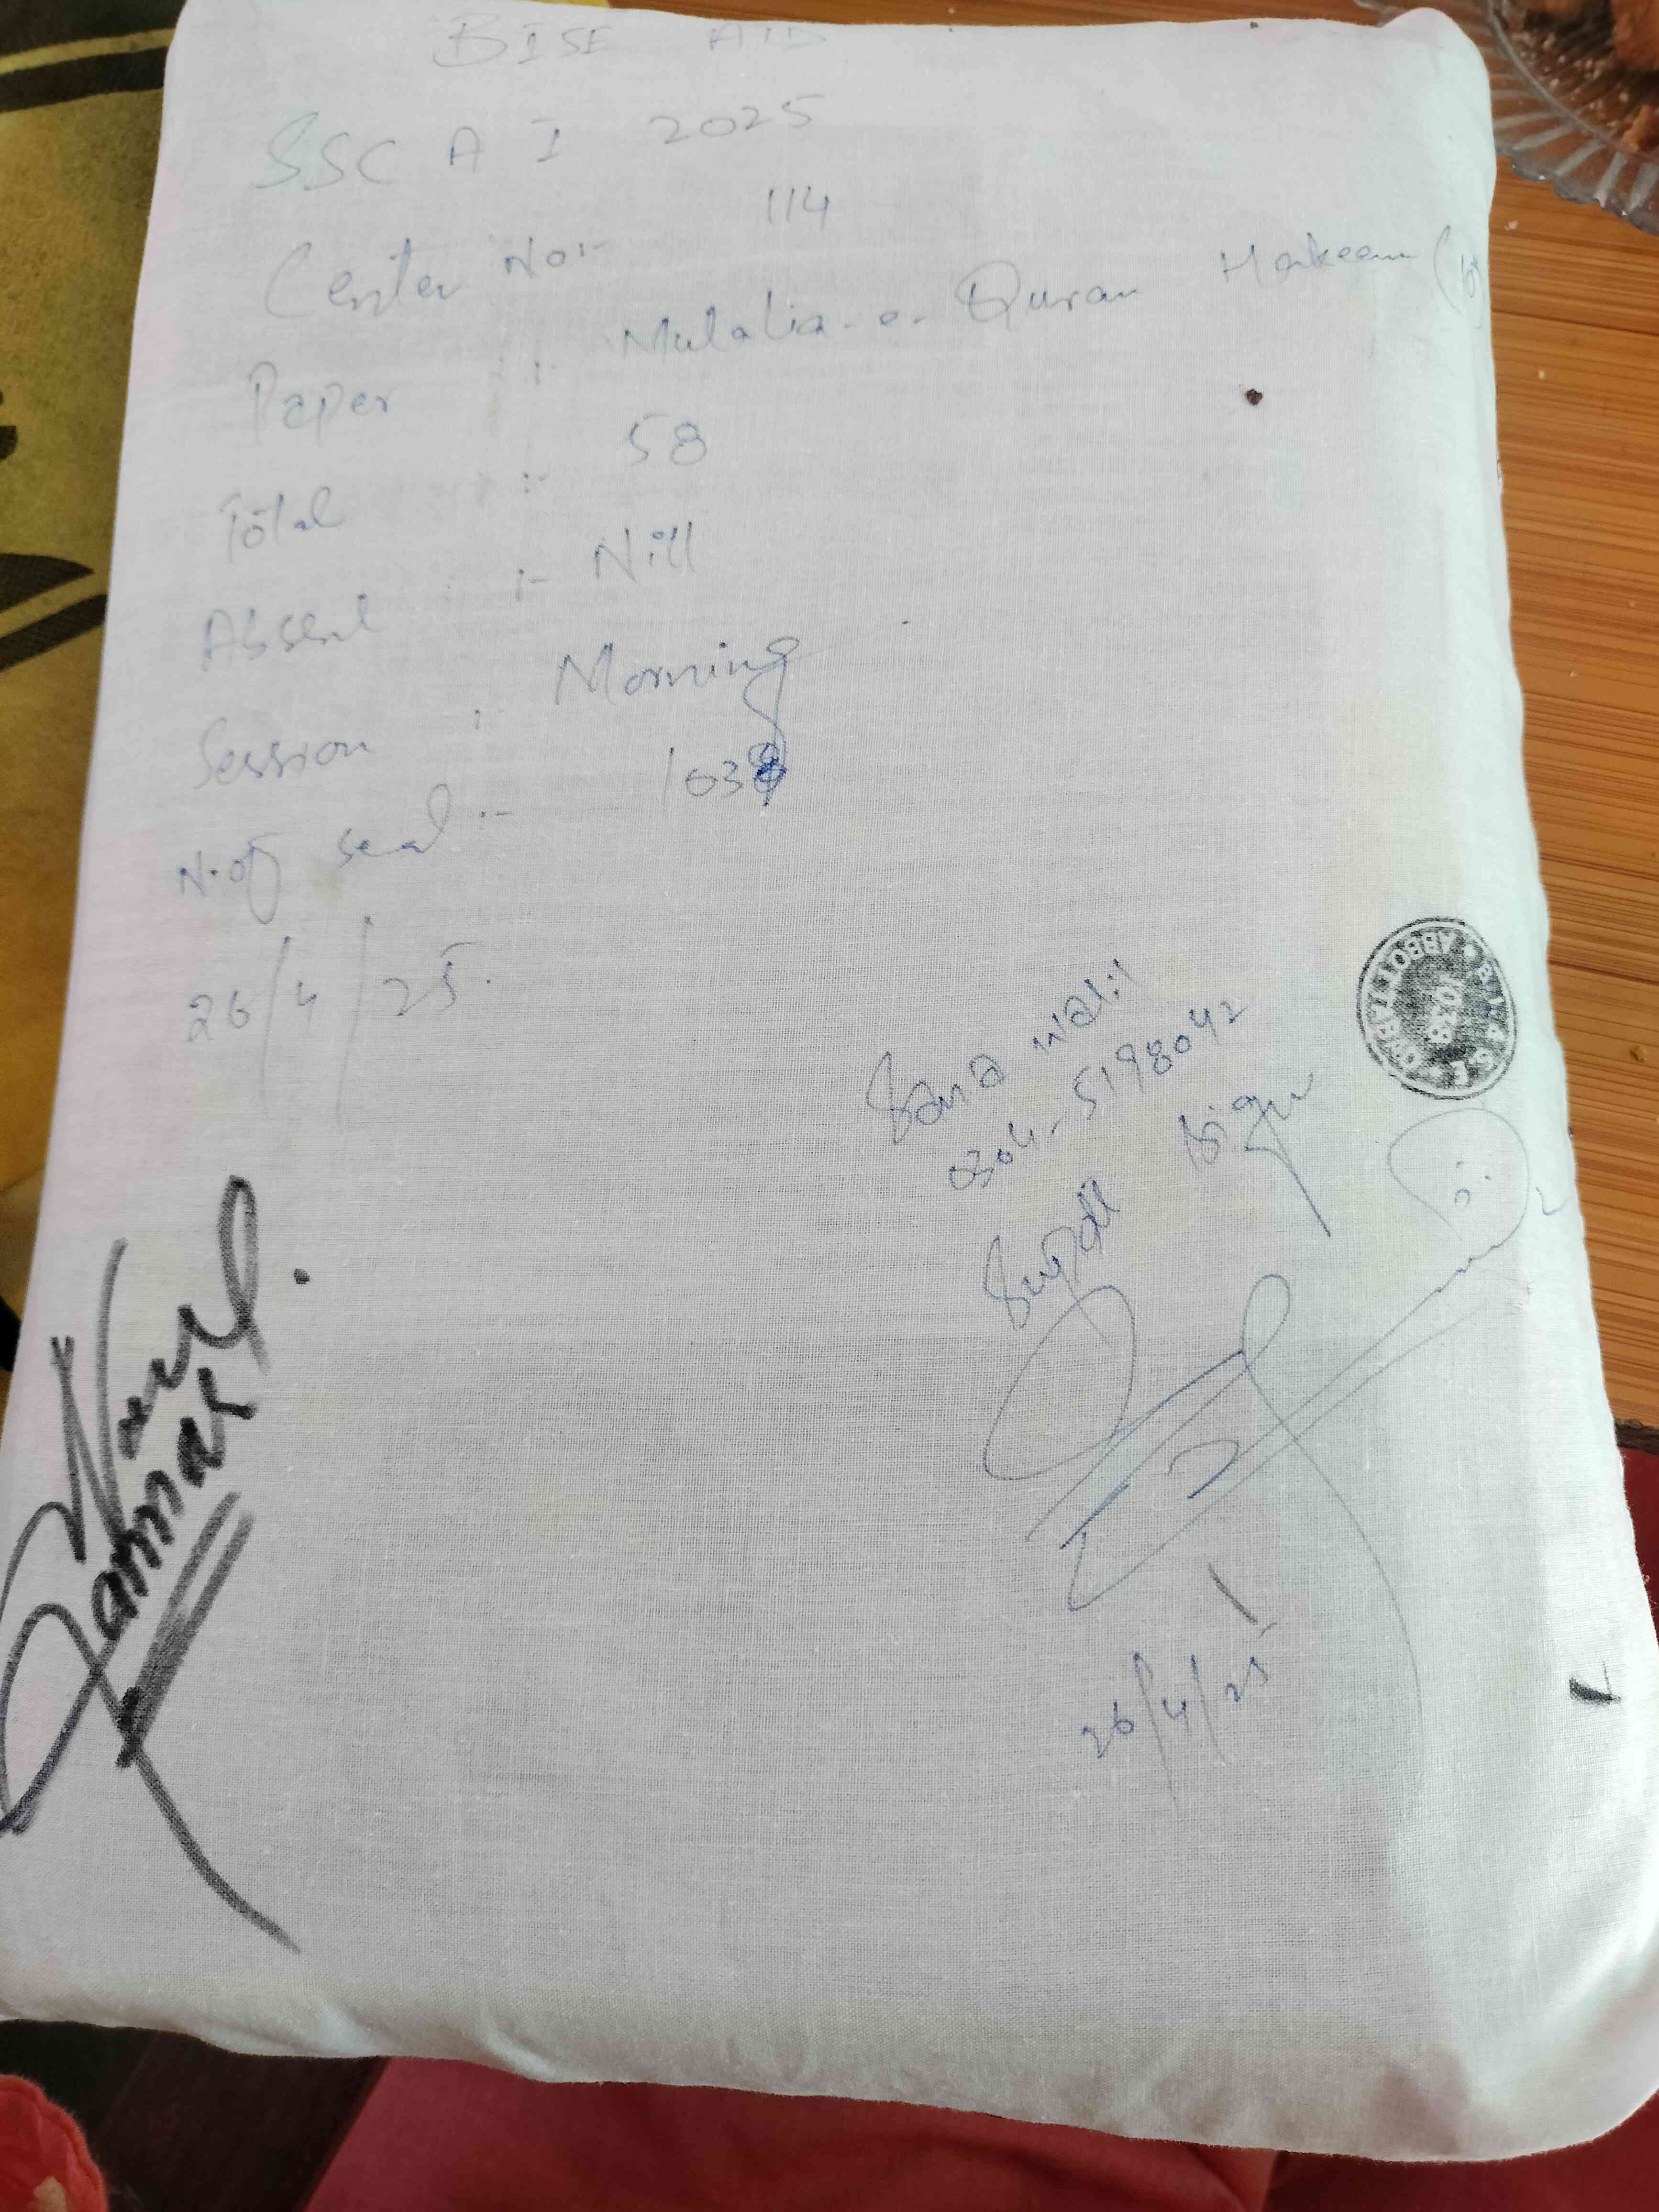 BISE ATD
SSC A I 2025
Center No:- 114
Paper :- Mutalia-e-Quran Hakeem
Total :- 58
Absent :- Nill
Session :- Morning
N.of seal :- 1038
26/4/25.
Sana
0304-5198042
26/4/25
B.I.S.E ABBOTTABAD
1038